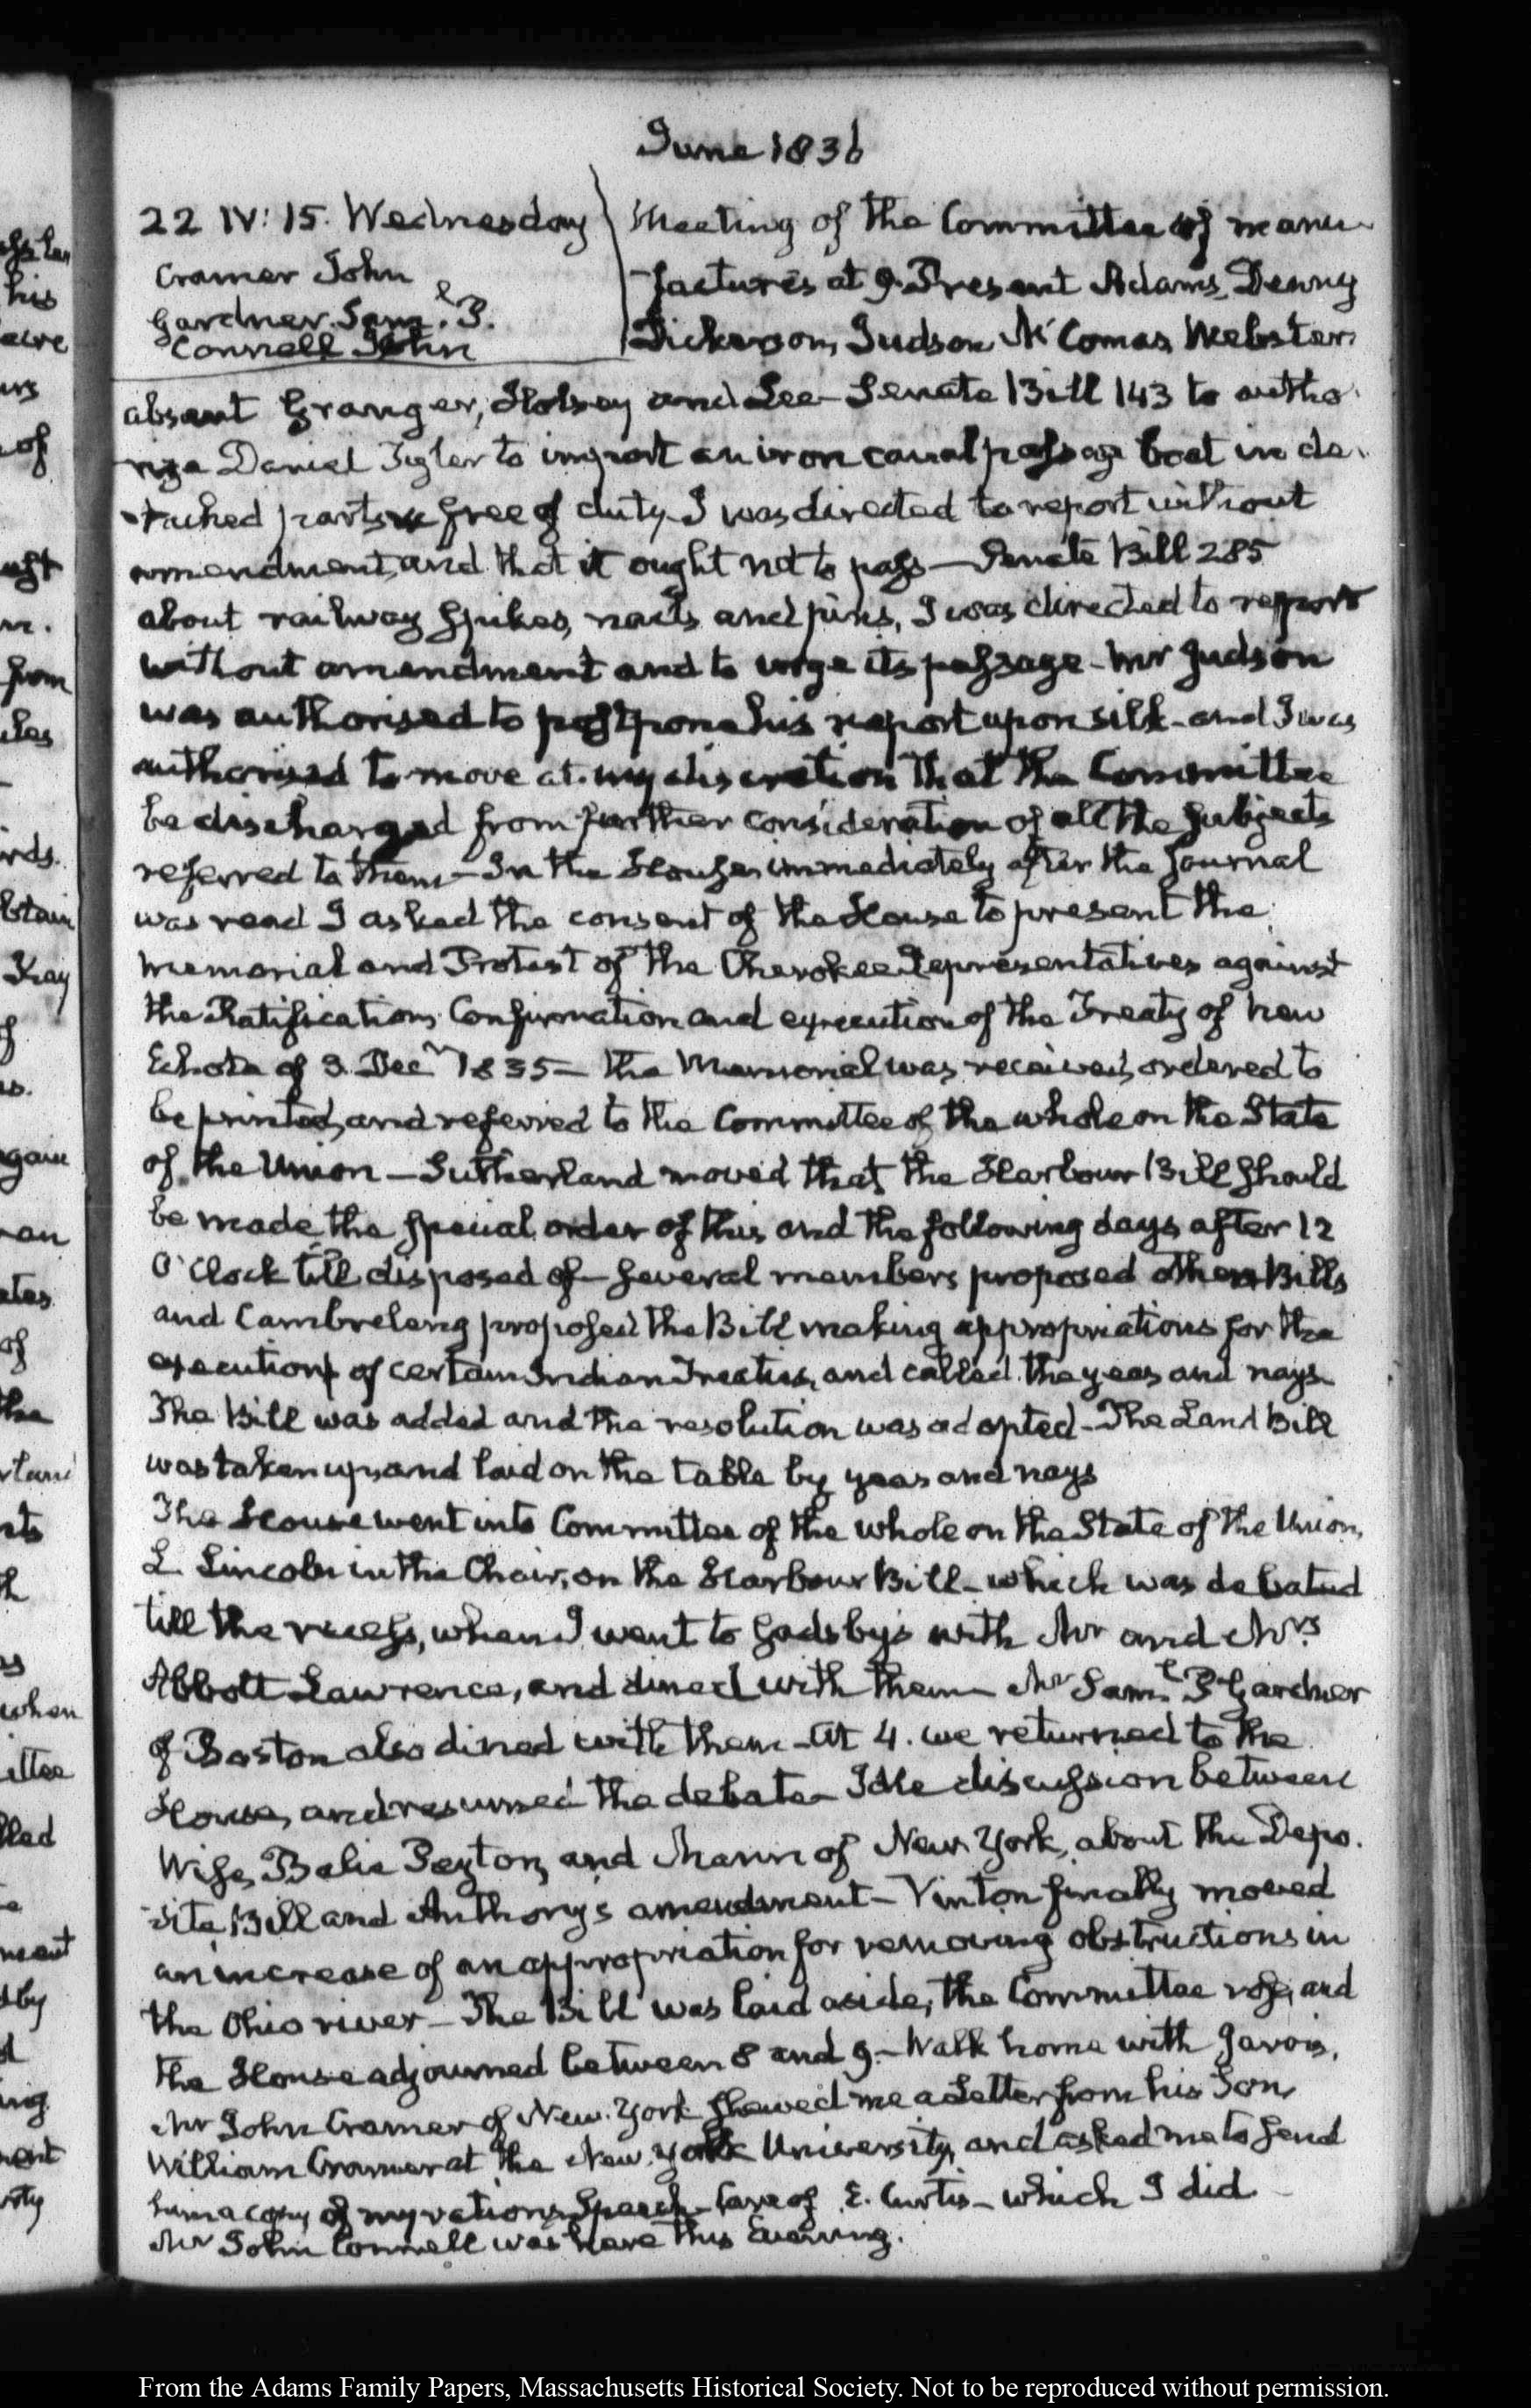 June 1836
22 IV: 15. Wednesday
Cramer John
Gardner. Sam.l P.
Connell John
Meeting of the Committee of manu-
factures at 9. Present Adams, Denny
Dickerson, Judson McComas Webster.
absent Granger, Halsey and Lee— Senate Bill 143 to autho-
rize Daniel to import an iron canal passage boat in de-
tached parts free of duty I was directed to report without
amendment, and that it ought not to pass— Senate Bill 285
about railway spikes, nails and pins, I was directed to report
without amendment and to urge its passage— Mr Judson
was authorised to postpone his report upon silk— and I was
authorised to move at my discretion that the Committee
be discharged from further consideration of all the subjects
referred to them— In the House immediately after the Journal
was read I asked the consent of the House to present the
Memorial and Protest of the Cherokee Representatives against
the Ratification, Confirmation and execution of the Treaty of New
Echota of 3. Decr 1835— the Memorial was received, ordered to
be printed, and referred to the Committee of the whole on the State
of the Union— Sutherland moved that the Harbour Bill should
be made the special order of this and the following days after 12
O'Clock till disposed of— several members proposed other Bills
and Cambreleng proposed the Bill making appropriations for the
execution of certain Indian Treaties, and called the yeas and nays
The Bill was added and the resolution was adopted— The Land Bill
was taken up, and laid on the table by yeas and nays
The House went into Committee of the whole on the State of the Union,
L. Lincoln in the Chair, on the Harbour Bill— which was debated
till the recess, when I went to Gadsby's with Mr and Mrs
Abbott Lawrence, and dined with them— Mr Saml. P Gardner
of Boston also dined with them— At 4. we returned to the
House, and resumed the debate— Idle discussion between
Wise, Balie Peyton, and Mann of New York, about the Depo-
site Bill and Anthony's amendment— Vinton finally moved
an increase of an appropriation for removing obstructions in
the Ohio river— The Bill was laid aside, the Committee rose, and
the House adjourned between 8 and 9.— Walk home with Jarvis.
Mr John Cramer of New-York shewed me a Letter from his Son
William Cramer at the New-York University, and asked me to send
him a copy of my rations Speech— Care of E. Curtis— which I did—
Mr John Connell was here this Evening.
From the Adams Family Papers, Massachusetts Historical Society. Not to be reproduced without permission.